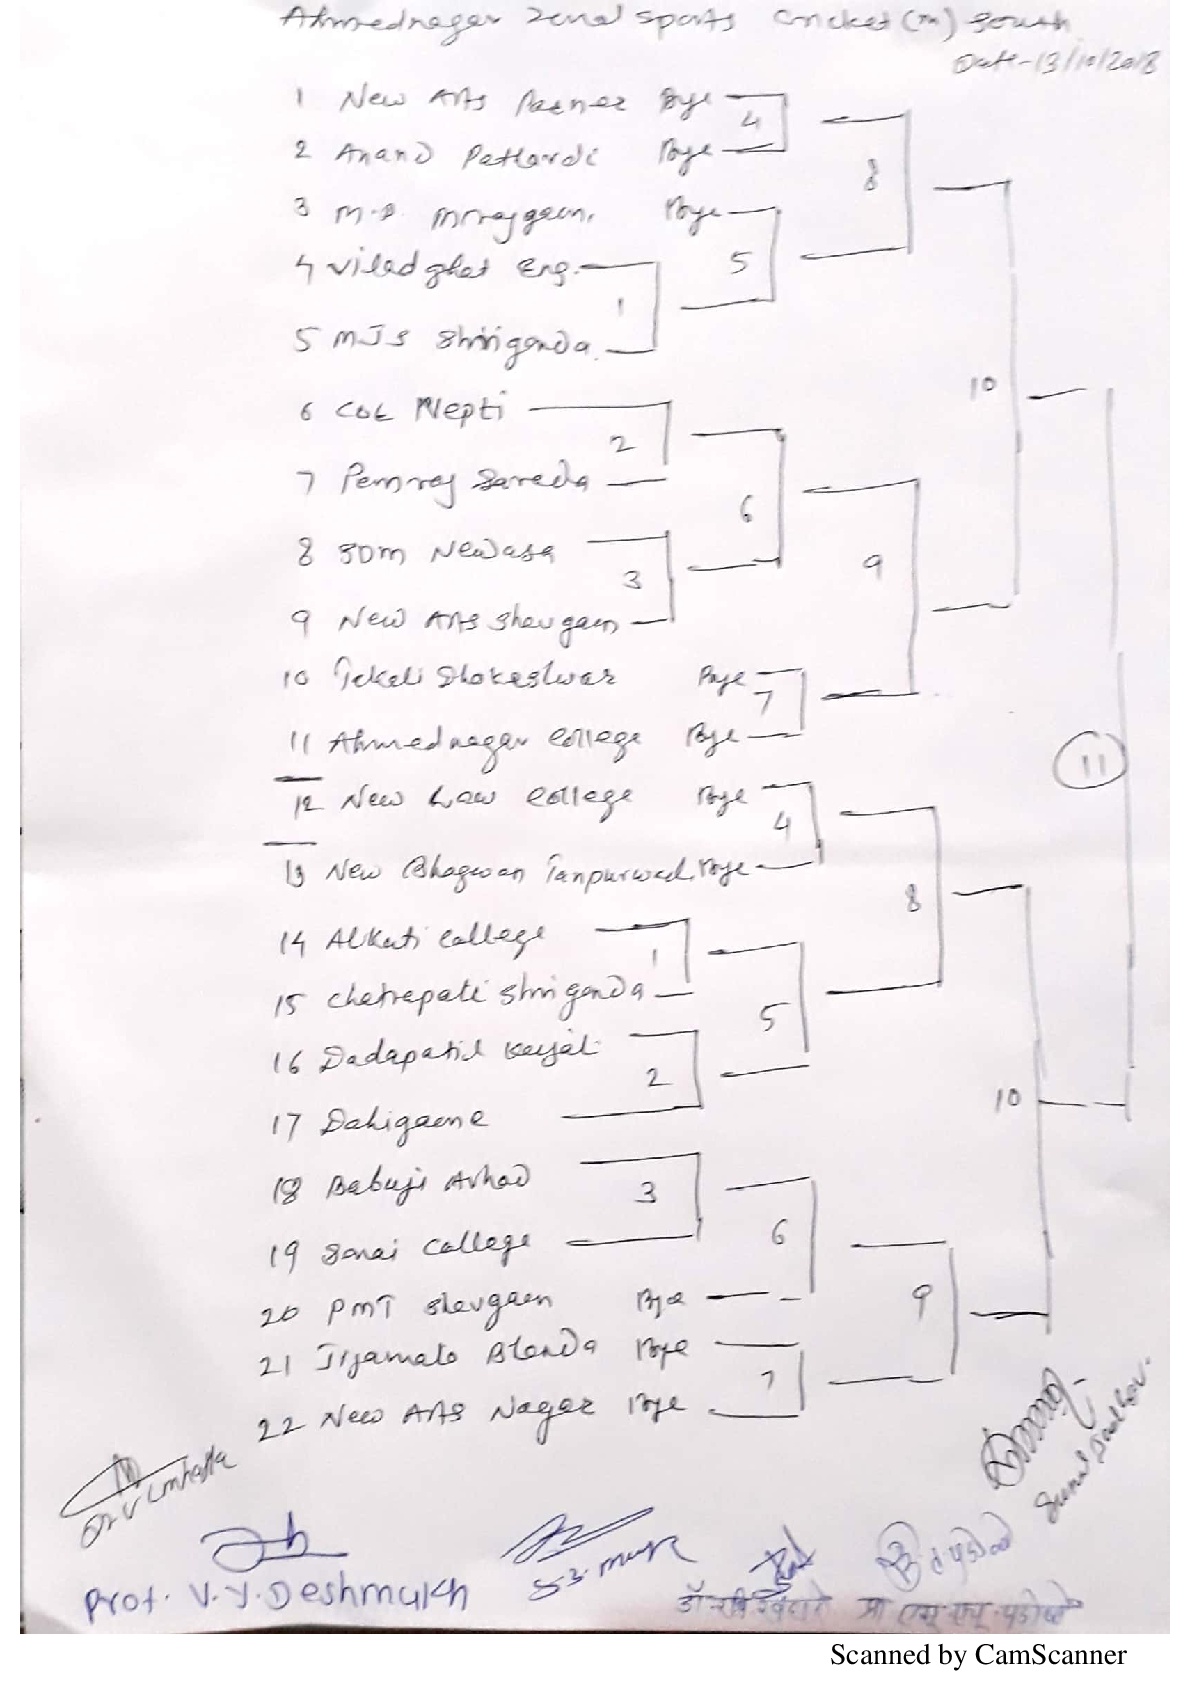 Ahmednagar Zonal Sports Cricket (m) South
Date-13/10/2018
1 New Arts Parner Bye
4
2 Anand Pathardi Bye
8
3 M.D. Bye
5
4 Viladghat Eng.
1
5 MJS Shrigonda
10
6 COE Nepti
2
7 Pemraj Sarada
6
8 SDM Newasa
3
9
9 New Arts Shevgaon
10 Takali Dhokeshwar Bye
7
11 Ahmednagar College Bye
11
12 New Law College Bye
4
13 New Bhagwan Bye
8
14 Alkuti College
1
15 Chatrapati Shrigonda
5
16 Dadapatil Karjat
2
10
17 Dahigaon e
18 Babuji Avhad
3
19 Sonai College
6
20 PMT Shevgaon Bye
9
21 Jijamata Bhenda Bye
7
22 New Arts Nagar Bye
Prof. V.Y. Deshmukh
Scanned by CamScanner